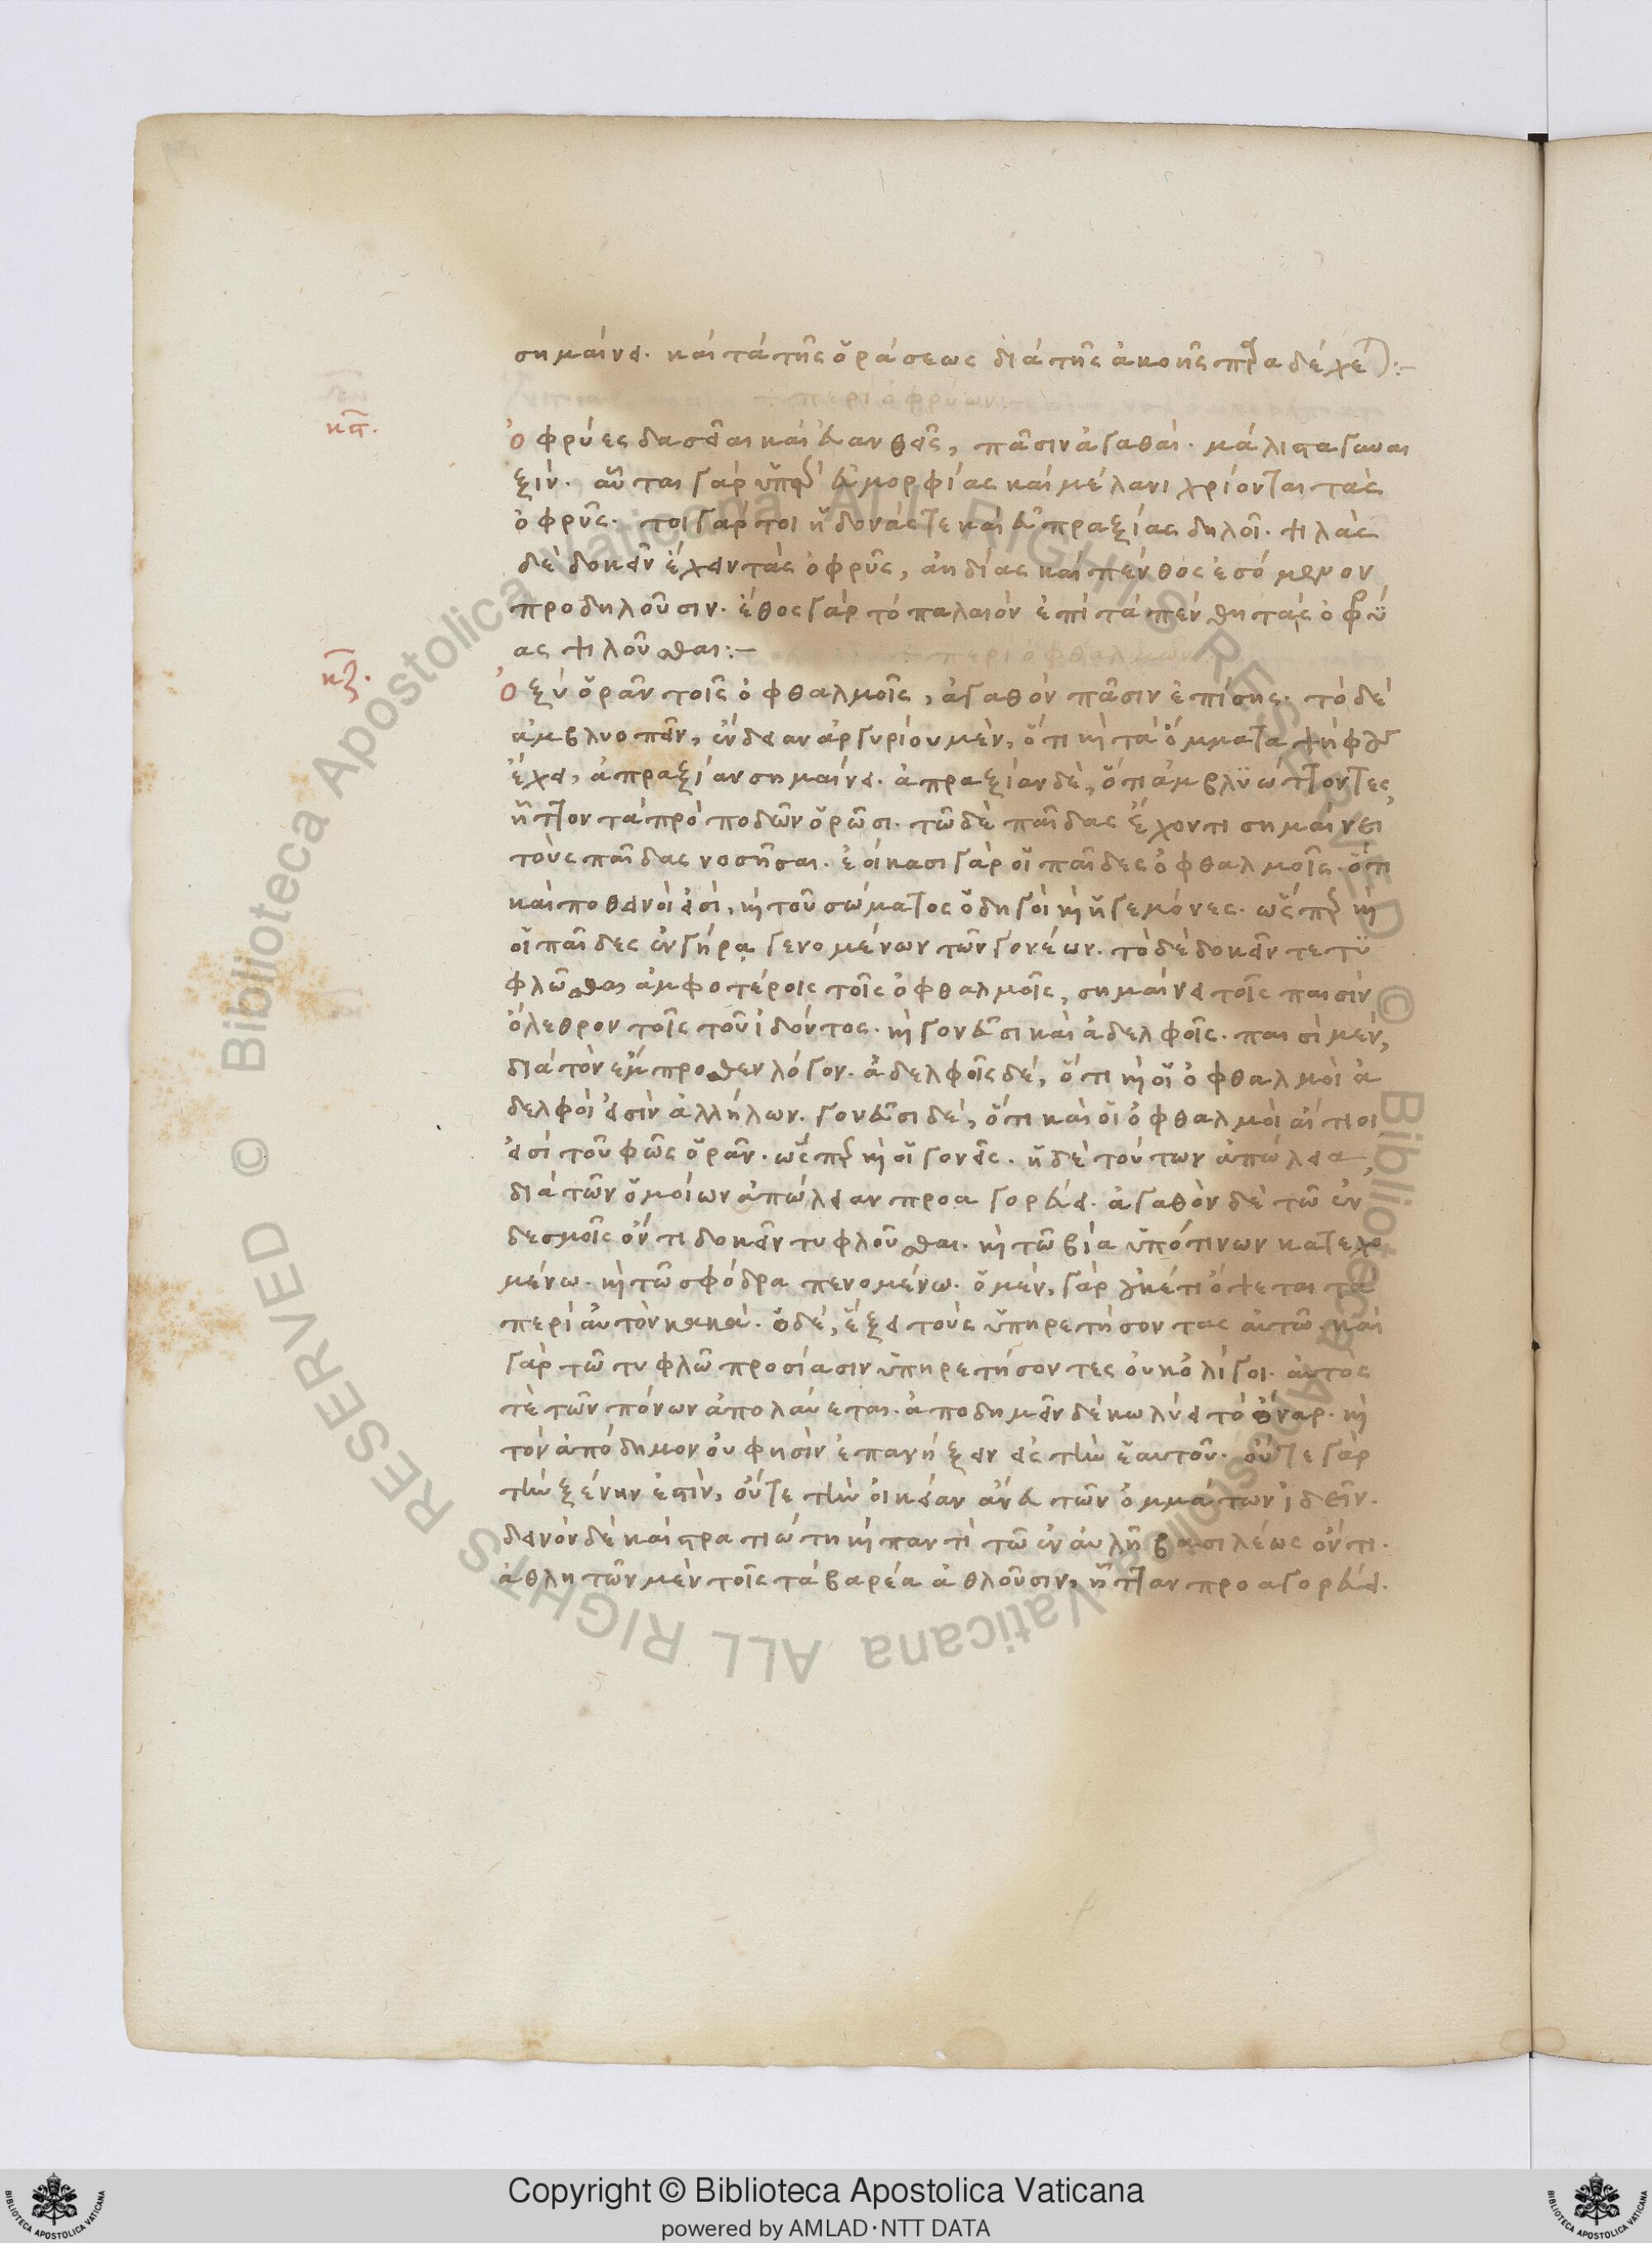 σημαίνει. καὶ τὰ τῆς ὁράσεως διὰ τῆς ἀκοῆς παραδέχεται:-
περὶ ὀφρύων
κϛ.
ὀφρύες δασεῖαι καὶ εὐανθεῖς, πᾶσιν ἀγαθαί. μάλιστα γυναι
ξίν. αὗται γὰρ ὑπὲρ εὐμορφίας καὶ μέλανι χρίονται τὰς
ὀφρῦς. τοιγάρτοι ἡδονάς τε καὶ εὐπραξίας δηλοῖ. ψιλὰς
δὲ δοκεῖν ἔχειν τὰς ὀφρῦς, ἀηδίας καὶ πένθος ἐσόμενον
προδηλοῦσιν. ἔθος γὰρ τὸ παλαιὸν ἐπὶ τὰ πένθη τὰς ὀφρύ
ας ψιλοῦσθαι:-
περὶ ὀφθαλμῶν
κζ.
Ὀξὺ ὁρᾶν τοῖς ὀφθαλμοῖς, ἀγαθὸν πᾶσιν ἐπίσης. τὸ δὲ
ἀμβλυοπεῖν, ἔνδειαν ἀργυρίου μὲν, ὅτι καὶ τὰ ὄμματα ψήφους
ἔχει, ἀπραξίαν σημαίνει. ἀπραξίαν δὲ, ὅτι ἀμβλϋώττοντες
ἧττον τὰ πρὸ ποδῶν ὁρῶσι. τῶ δὲ παῖδας ἔχοντι σημαίνει
τοὺς παῖδας νοσῆσαι. ἐοίκασι γὰρ οἱ παῖδες ὀφθαλμοῖς. ὅτι
καὶ ποθεινοί εἰσι, καὶ τοῦ σώματος ὁδηγοὶ καὶ ἡγεμόνες. ὥσπερ καὶ
οἱ παῖδες ἐν γήρα γενομένων τῶν γονέων. τὸ δὲ δοκεῖν τετϋ
φλῶσθαι ἀμφοτέροις τοῖς ὀφθαλμοῖς, σημαίνει τοῖς παισὶν
ὄλεθρον τοῖς τοῦ ἰδόντος. καὶ γονεῦσι καὶ ἀδελφοῖς. παισὶ μὲν,
διὰ τὸν ἔμπροσθεν λόγον. ἀδελφοῖς δέ, ὅτι καὶ οἱ ὀφθαλμοὶ ἀ
δελφοί εἰσιν ἀλλήλων. γονεῦσι δέ, ὅτι καὶ οἱ ὀφθαλμοὶ αἴτιοι
εἰσὶ τοῦ φῶς ὁρᾶν. ὥσπερ καὶ οἱ γονεῖς. ἡ δὲ τούτων ἀπώλεια,
διὰ τῶν ὁμοίων ἀπώλειαν προαγορεύει. ἀγαθὸν δὲ τῶ ἐν
δεσμοῖς ὄντι δοκεῖν τυφλοῦσθαι. καὶ τῶ βία ὑπό τινων κατεχο
μένω. καὶ τῶ σφόδρα πενομένω. ὁ μέν, γὰρ οὐκέτι ὄψεται τὰ
περὶ αὐτὸν κακά. ὁ δέ, ἕξει τοὺς ὑπηρετήσοντας αὐτῶ. καὶ
γὰρ τῶ τυφλῶ προσίασιν ὑπηρετήσοντες οὐκ ὀλίγοι. αὐτός
τε τῶν πόνων ἀπολαύεται. ἀποδημεῖν δὲ κωλύει τὸ ὄναρ. καὶ
τὸν ἀπόδημον οὔ φησιν ἐπανήξειν εἰς τὴν ἑαυτοῦ. οὔτε γὰρ
τὴν ξένην ἐστὶν, οὔτε τὴν οἰκείαν ἄνευ τῶν ὀμμάτων ἰδεῖν.
δεινὸν δὲ καὶ στρατιώτη καὶ παντὶ τῶ ἐν αὐλῆ βασιλέως ὄντι.
ἀθλητῶν μὲν τοῖς τὰ βαρέα ἀθλοῦσιν, ἧτταν προαγορεύει.
© Biblioteca Apostolica Vaticana ALL RIGHTS RESERVED
© Biblioteca Apostolica Vaticana ALL RIGHTS RESERVED
BIBLIOTECA APOSTOLICA VATICANA
Copyright © Biblioteca Apostolica Vaticana
powered by AMLAD·NTT DATA
BIBLIOTECA APOSTOLICA VATICANA